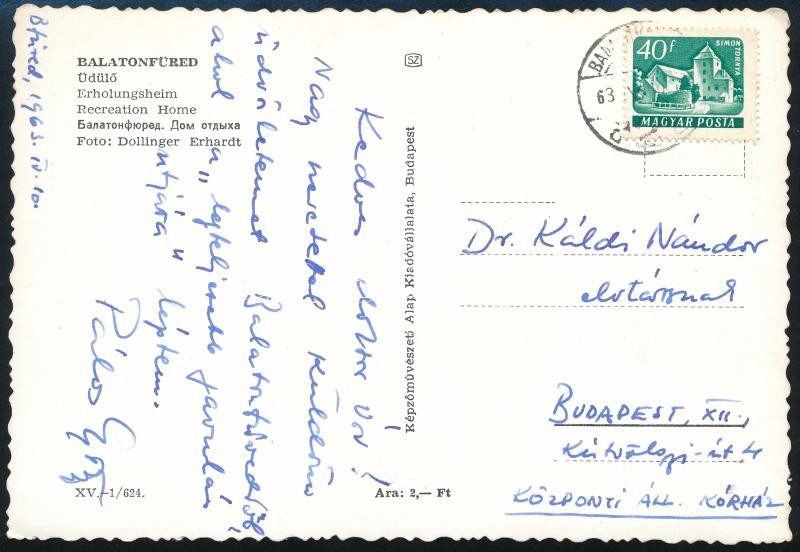 BALATONFÜRED
Üdülő
Erholungsheim
Recreation Home
Балатонфюред. Дом отдыха
Foto: Dollinger Erhardt
Bfüred, 1963. IV. 10.
Kedves doktor Úr!
Nagy szeretettel küldöm
üdvözletemet Balatonfüredről
ahol a „legteljesebb javulás
útjára" léptem.
Pálos
XV.—1/624.
Ara: 2,— Ft
Képzőművészeti Alap Kiadóvállalata, Budapest
SZ
63
40f
SIMON
TORNYA
MAGYAR POSTA
Dr. Káldi Nándor
elvtársnak
BUDAPEST, XII.,
Kútvölgyi-út 4
KÖZPONTI ÁLL. KÓRHÁZ